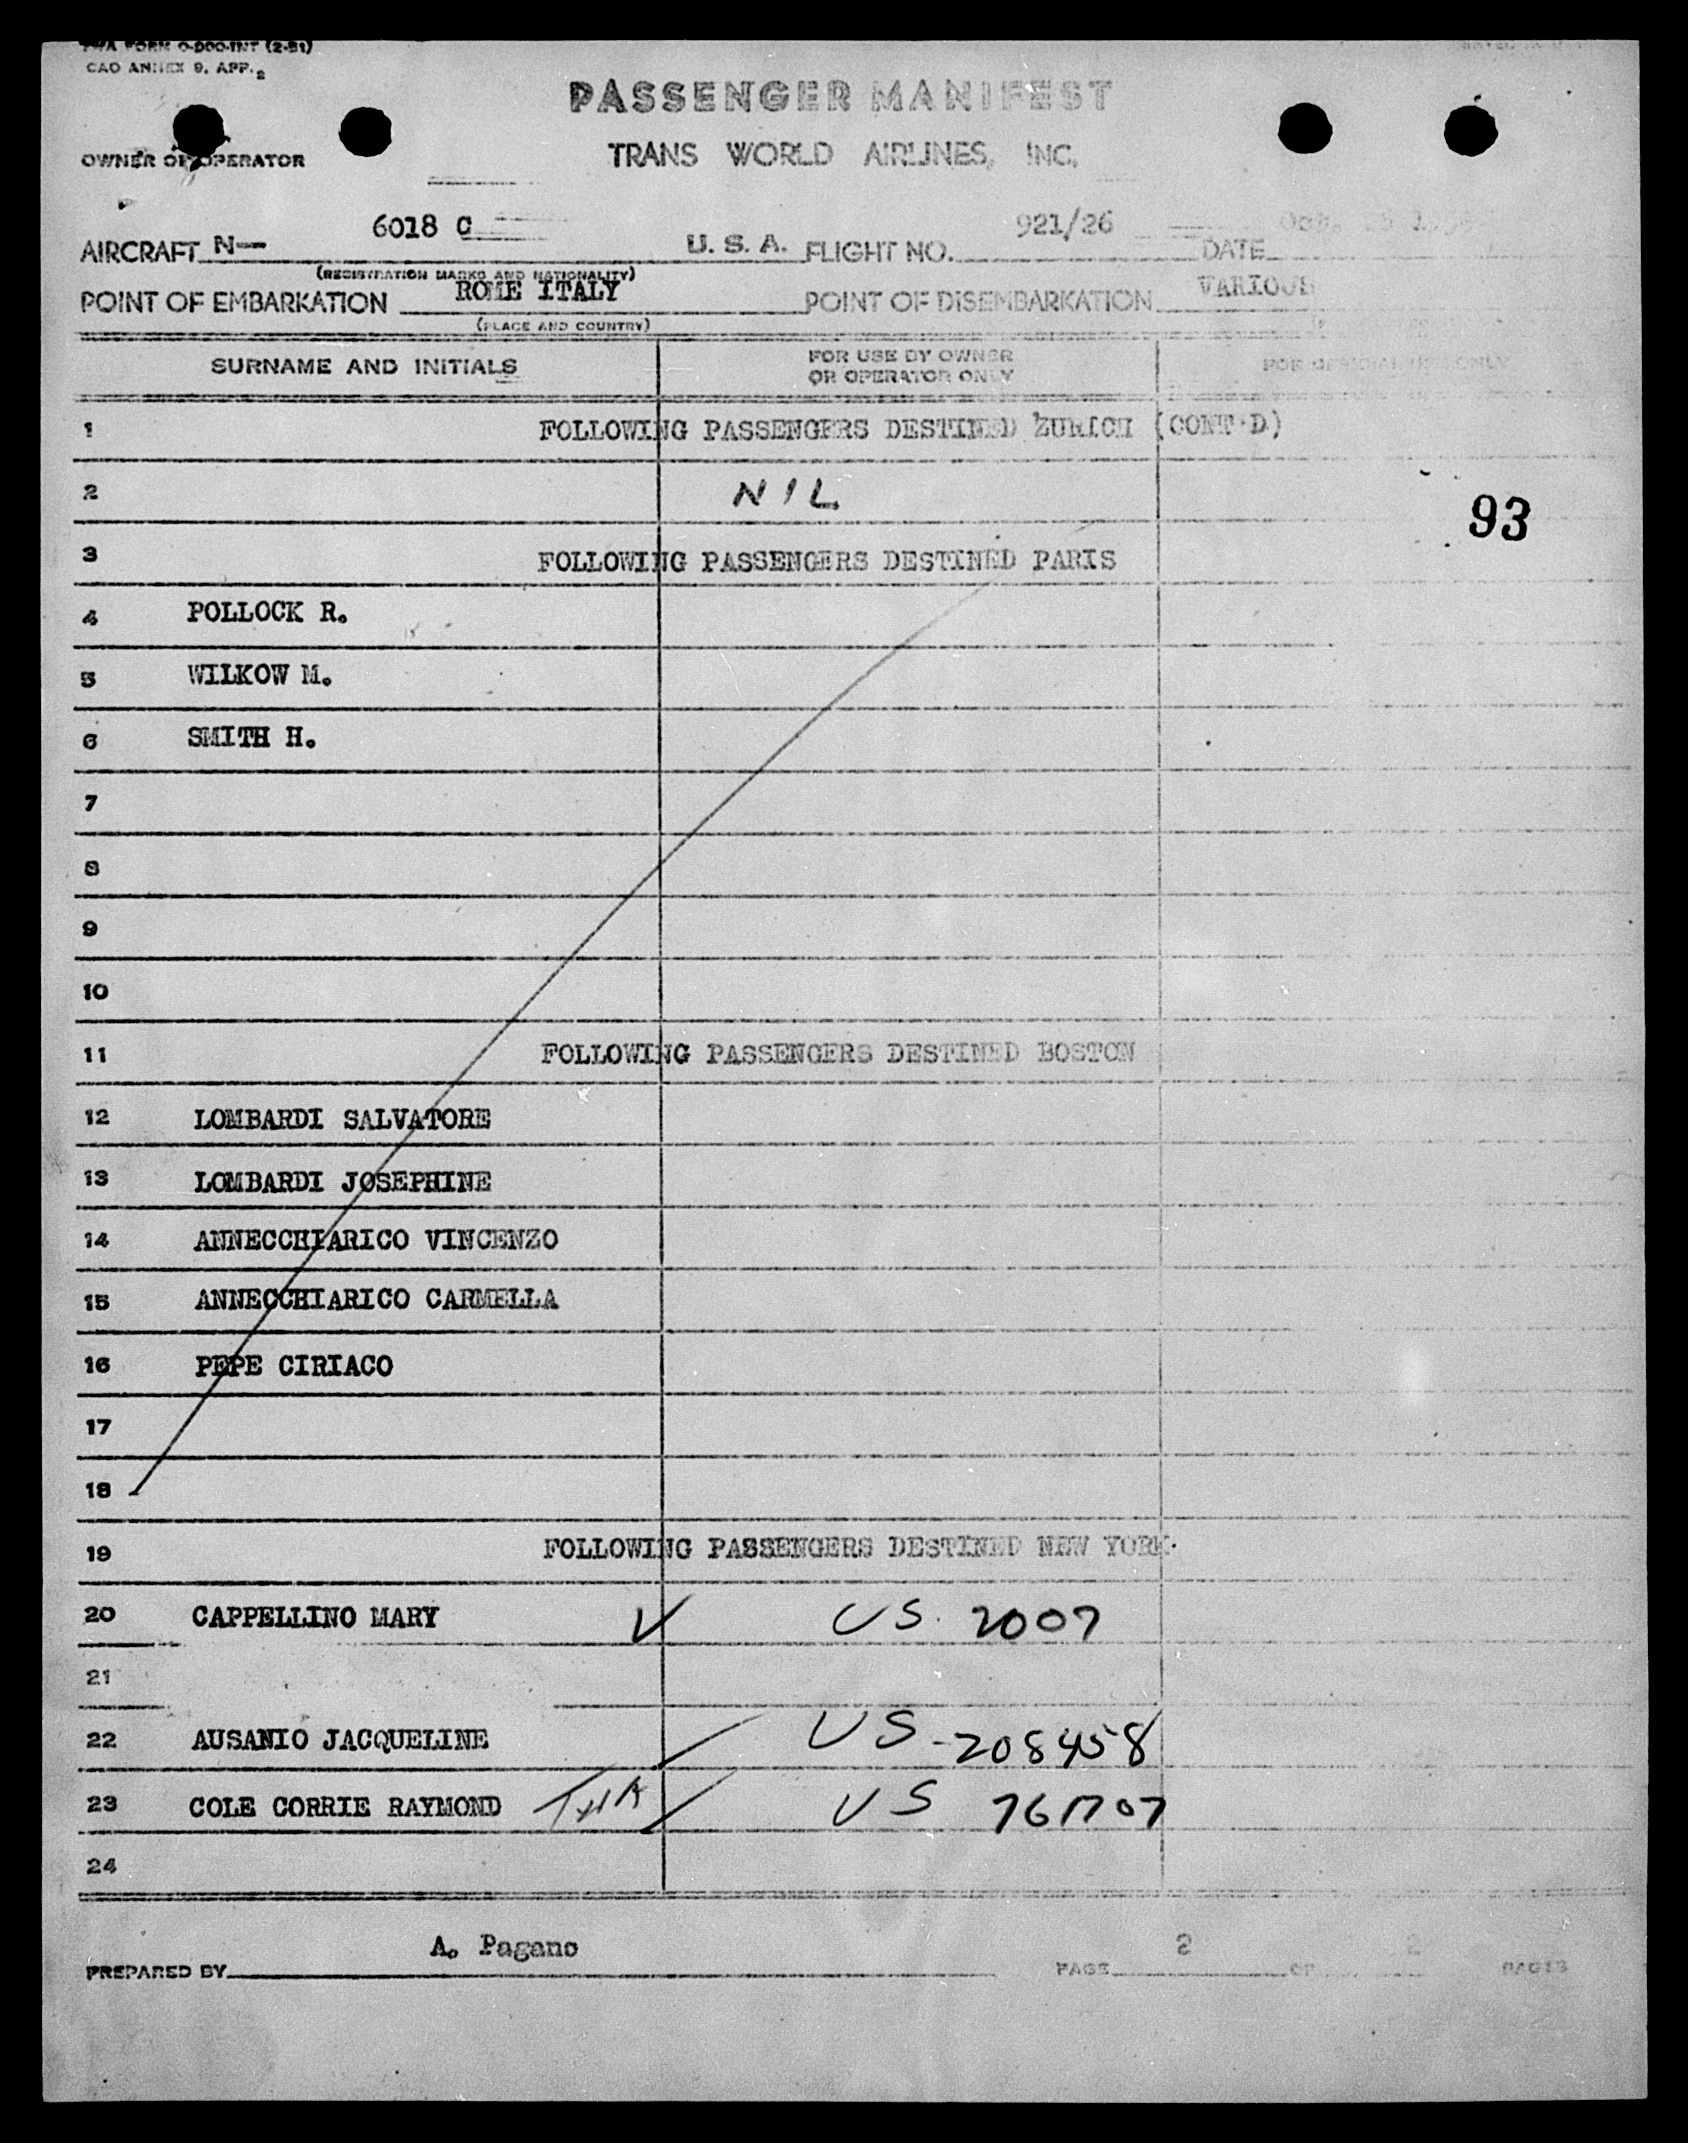 TWA FORM O-DOO-INT (2-51)
CAO ANNEX 9, APP. 2
PASSENGER MANIFEST
OWNER OR OPERATOR
TRANS WORLD AIRLINES, INC.
AIRCRAFT N— 6018 C U. S. A. FLIGHT NO. 921/26 DATE
(REGISTRATION MARKS AND NATIONALITY)
POINT OF EMBARKATION ROME ITALY POINT OF DISEMBARKATION VARIOUS
(PLACE AND COUNTRY)
SURNAME AND INITIALS FOR USE BY OWNER OR OPERATOR ONLY FOR OFFICIAL USE ONLY
1 FOLLOWING PASSENGERS DESTINED ZURICH (CONT'D)
2 NIL
93
3 FOLLOWING PASSENGERS DESTINED PARIS
4 POLLOCK R.
5 WILKOW M.
6 SMITH H.
7
8
9
10
11 FOLLOWING PASSENGERS DESTINED BOSTON
12 LOMBARDI SALVATORE
13 LOMBARDI JOSEPHINE
14 ANNECCHIARICO VINCENZO
15 ANNECCHIARICO CARMELLA
16 PEPE CIRIACO
17
18
19 FOLLOWING PASSENGERS DESTINED NEW YORK
20 CAPPELLINO MARY US. 2007
21
22 AUSANIO JACQUELINE US-208458
23 COLE CORRIE RAYMOND US 761707
24
PREPARED BY A. Pagano PAGE 2 OF 2 PAGES